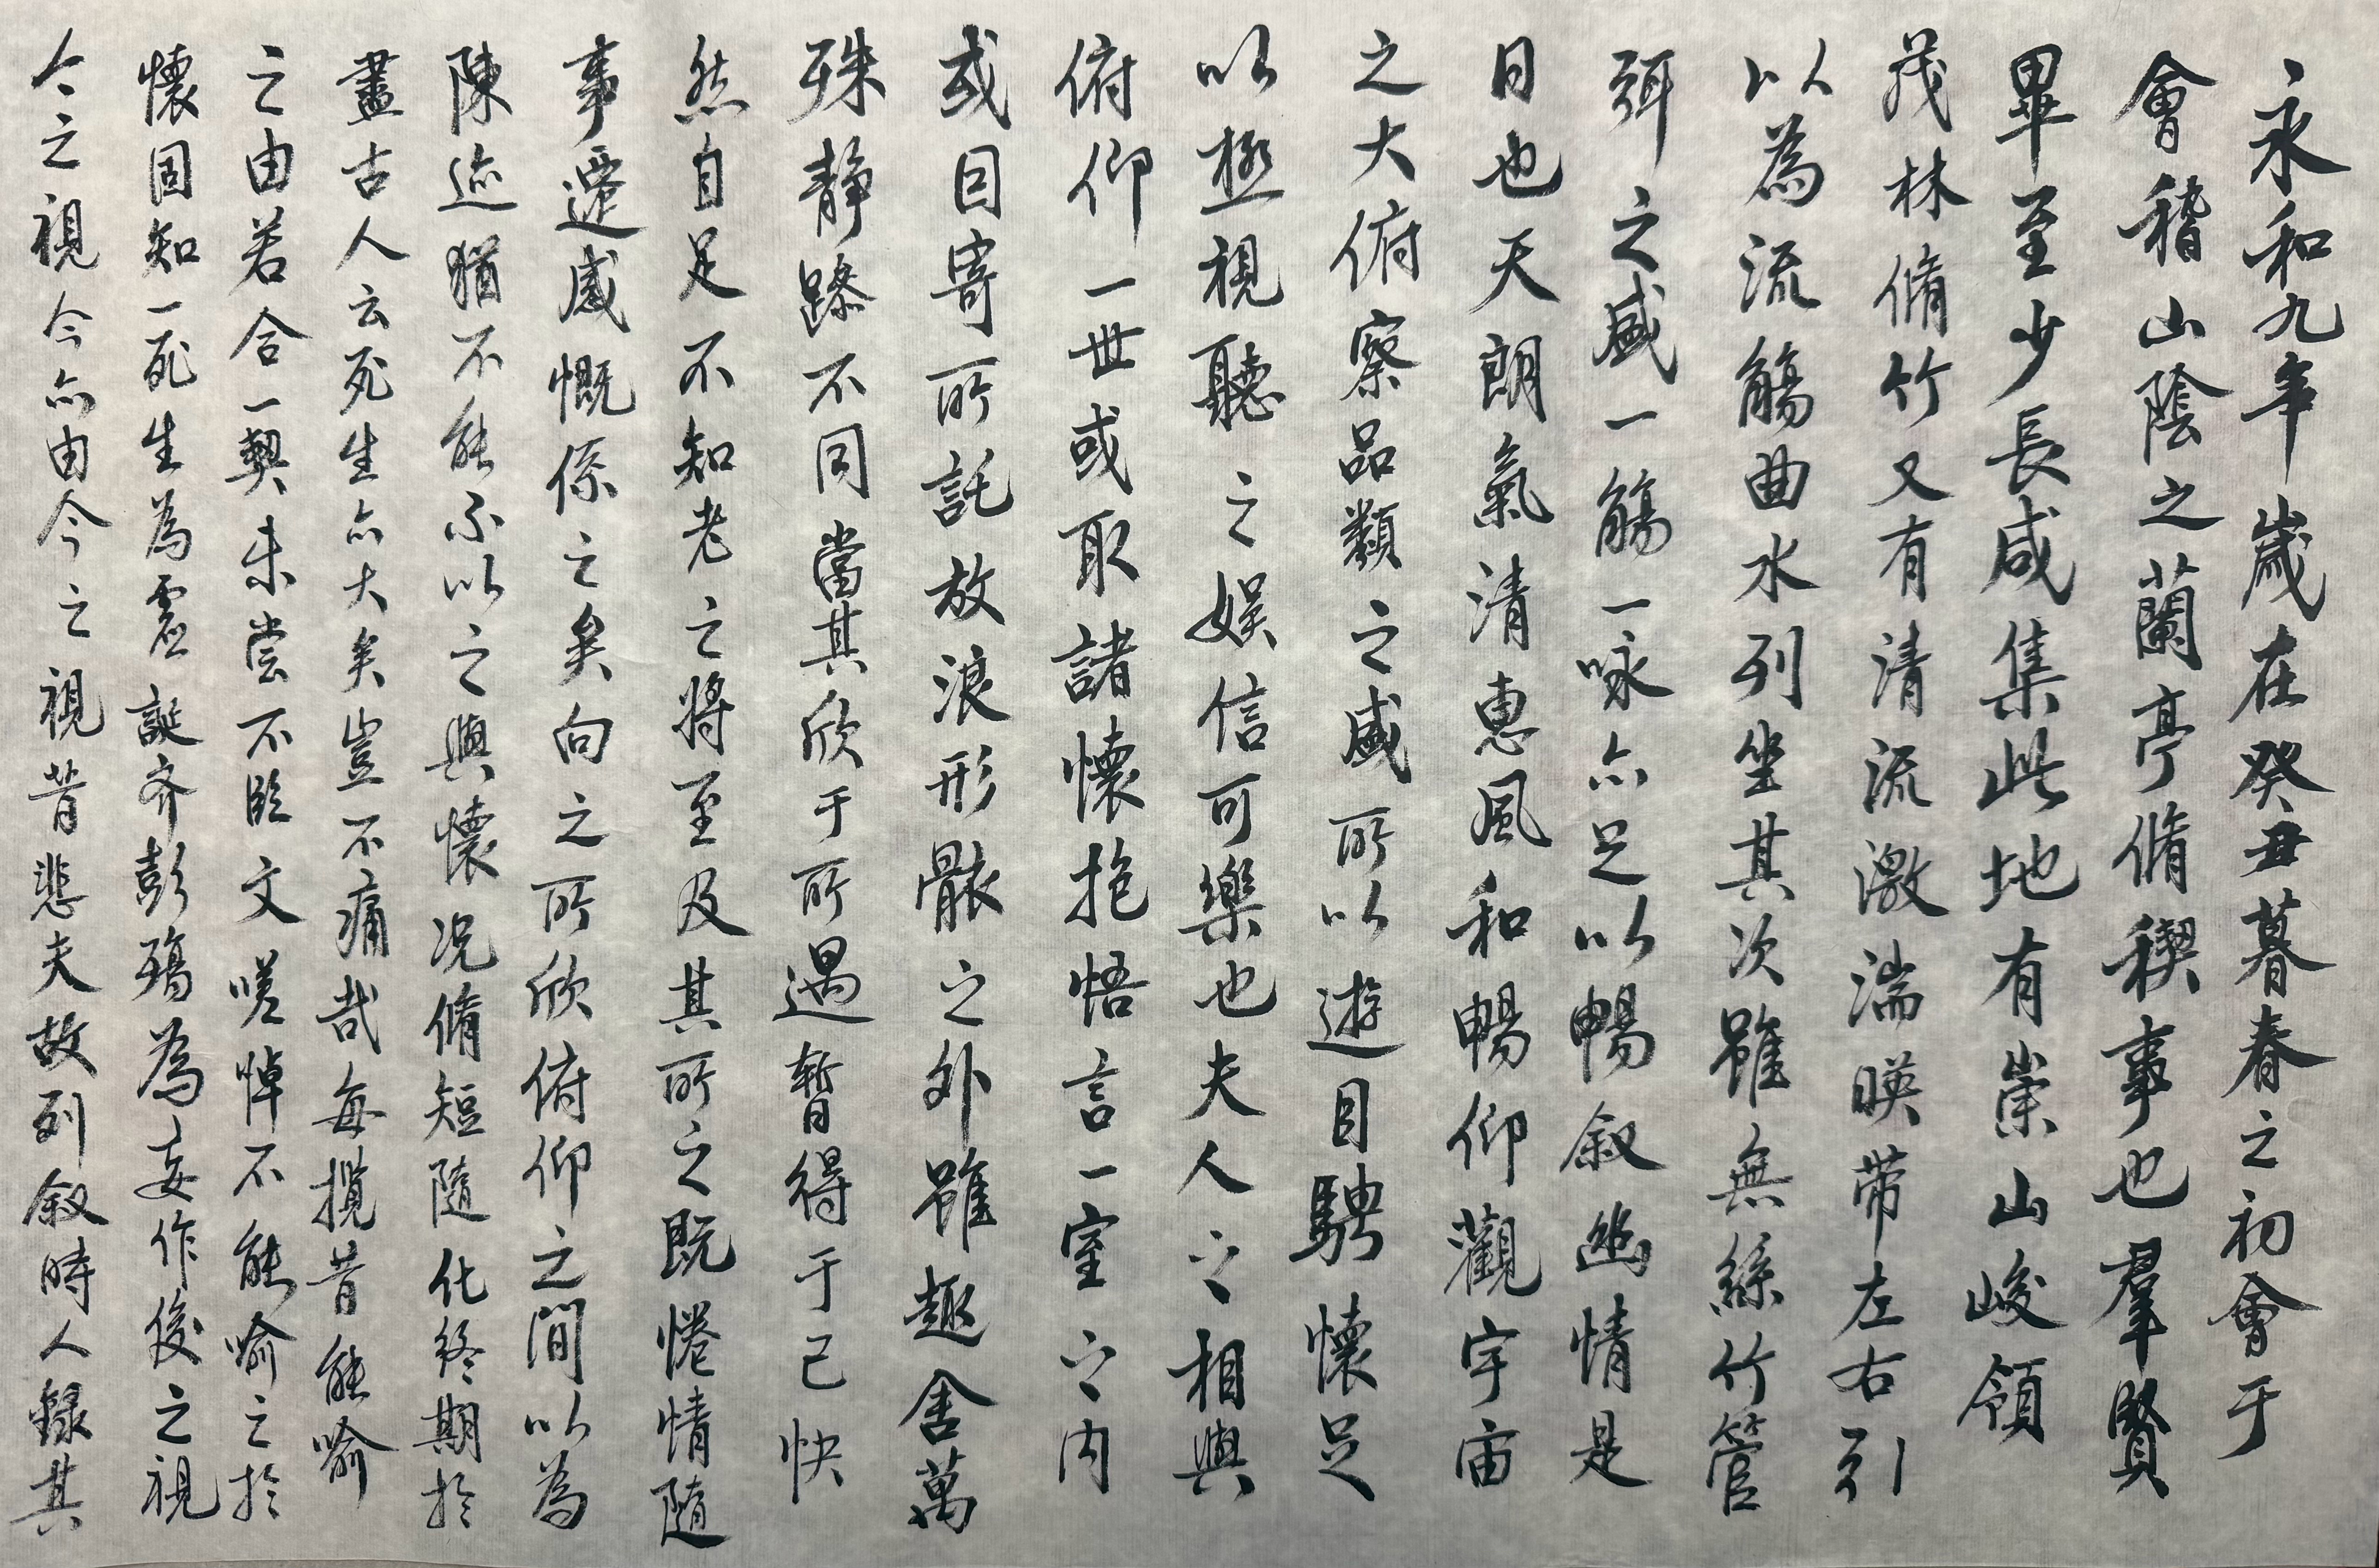 永和九年歲在癸丑暮春之初會于
會稽山陰之蘭亭脩稧事也羣賢
畢至少長咸集此地有崇山峻領
茂林脩竹又有清流激湍暎帶左右引
以為流觴曲水列坐其次雖無絲竹管
弦之盛一觴一咏亦足以暢叙幽情是
日也天朗氣清惠風和暢仰觀宇宙
之大俯察品類之盛所以遊目騁懷足
以極視聽之娛信可樂也夫人之相與
俯仰一世或取諸懷抱悟言一室之內
或因寄所託放浪形骸之外雖趣舍萬
殊靜躁不同當其欣于所遇暫得于己快
然自足不知老之將至及其所之既惓情隨
事遷感慨係之矣向之所欣俯仰之間以為
陳迹猶不能不以之興懷况脩短隨化終期於
盡古人云死生亦大矣豈不痛哉每攬昔能喻
之由若合一契未嘗不臨文嗟悼不能喻之於
懷固知一死生為虛誕齊彭殤為妄作後之視
今之視今亦由今之視昔悲夫故列叙時人錄其